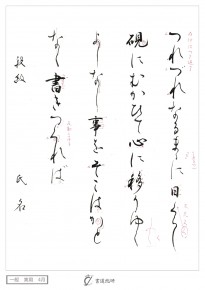 つれづれなるまゝに日ぐらし
硯にむかひて心に移りゆく
よしなし事をそこはかと
なく書きつくれば
段級 氏名
一般 4月
書道